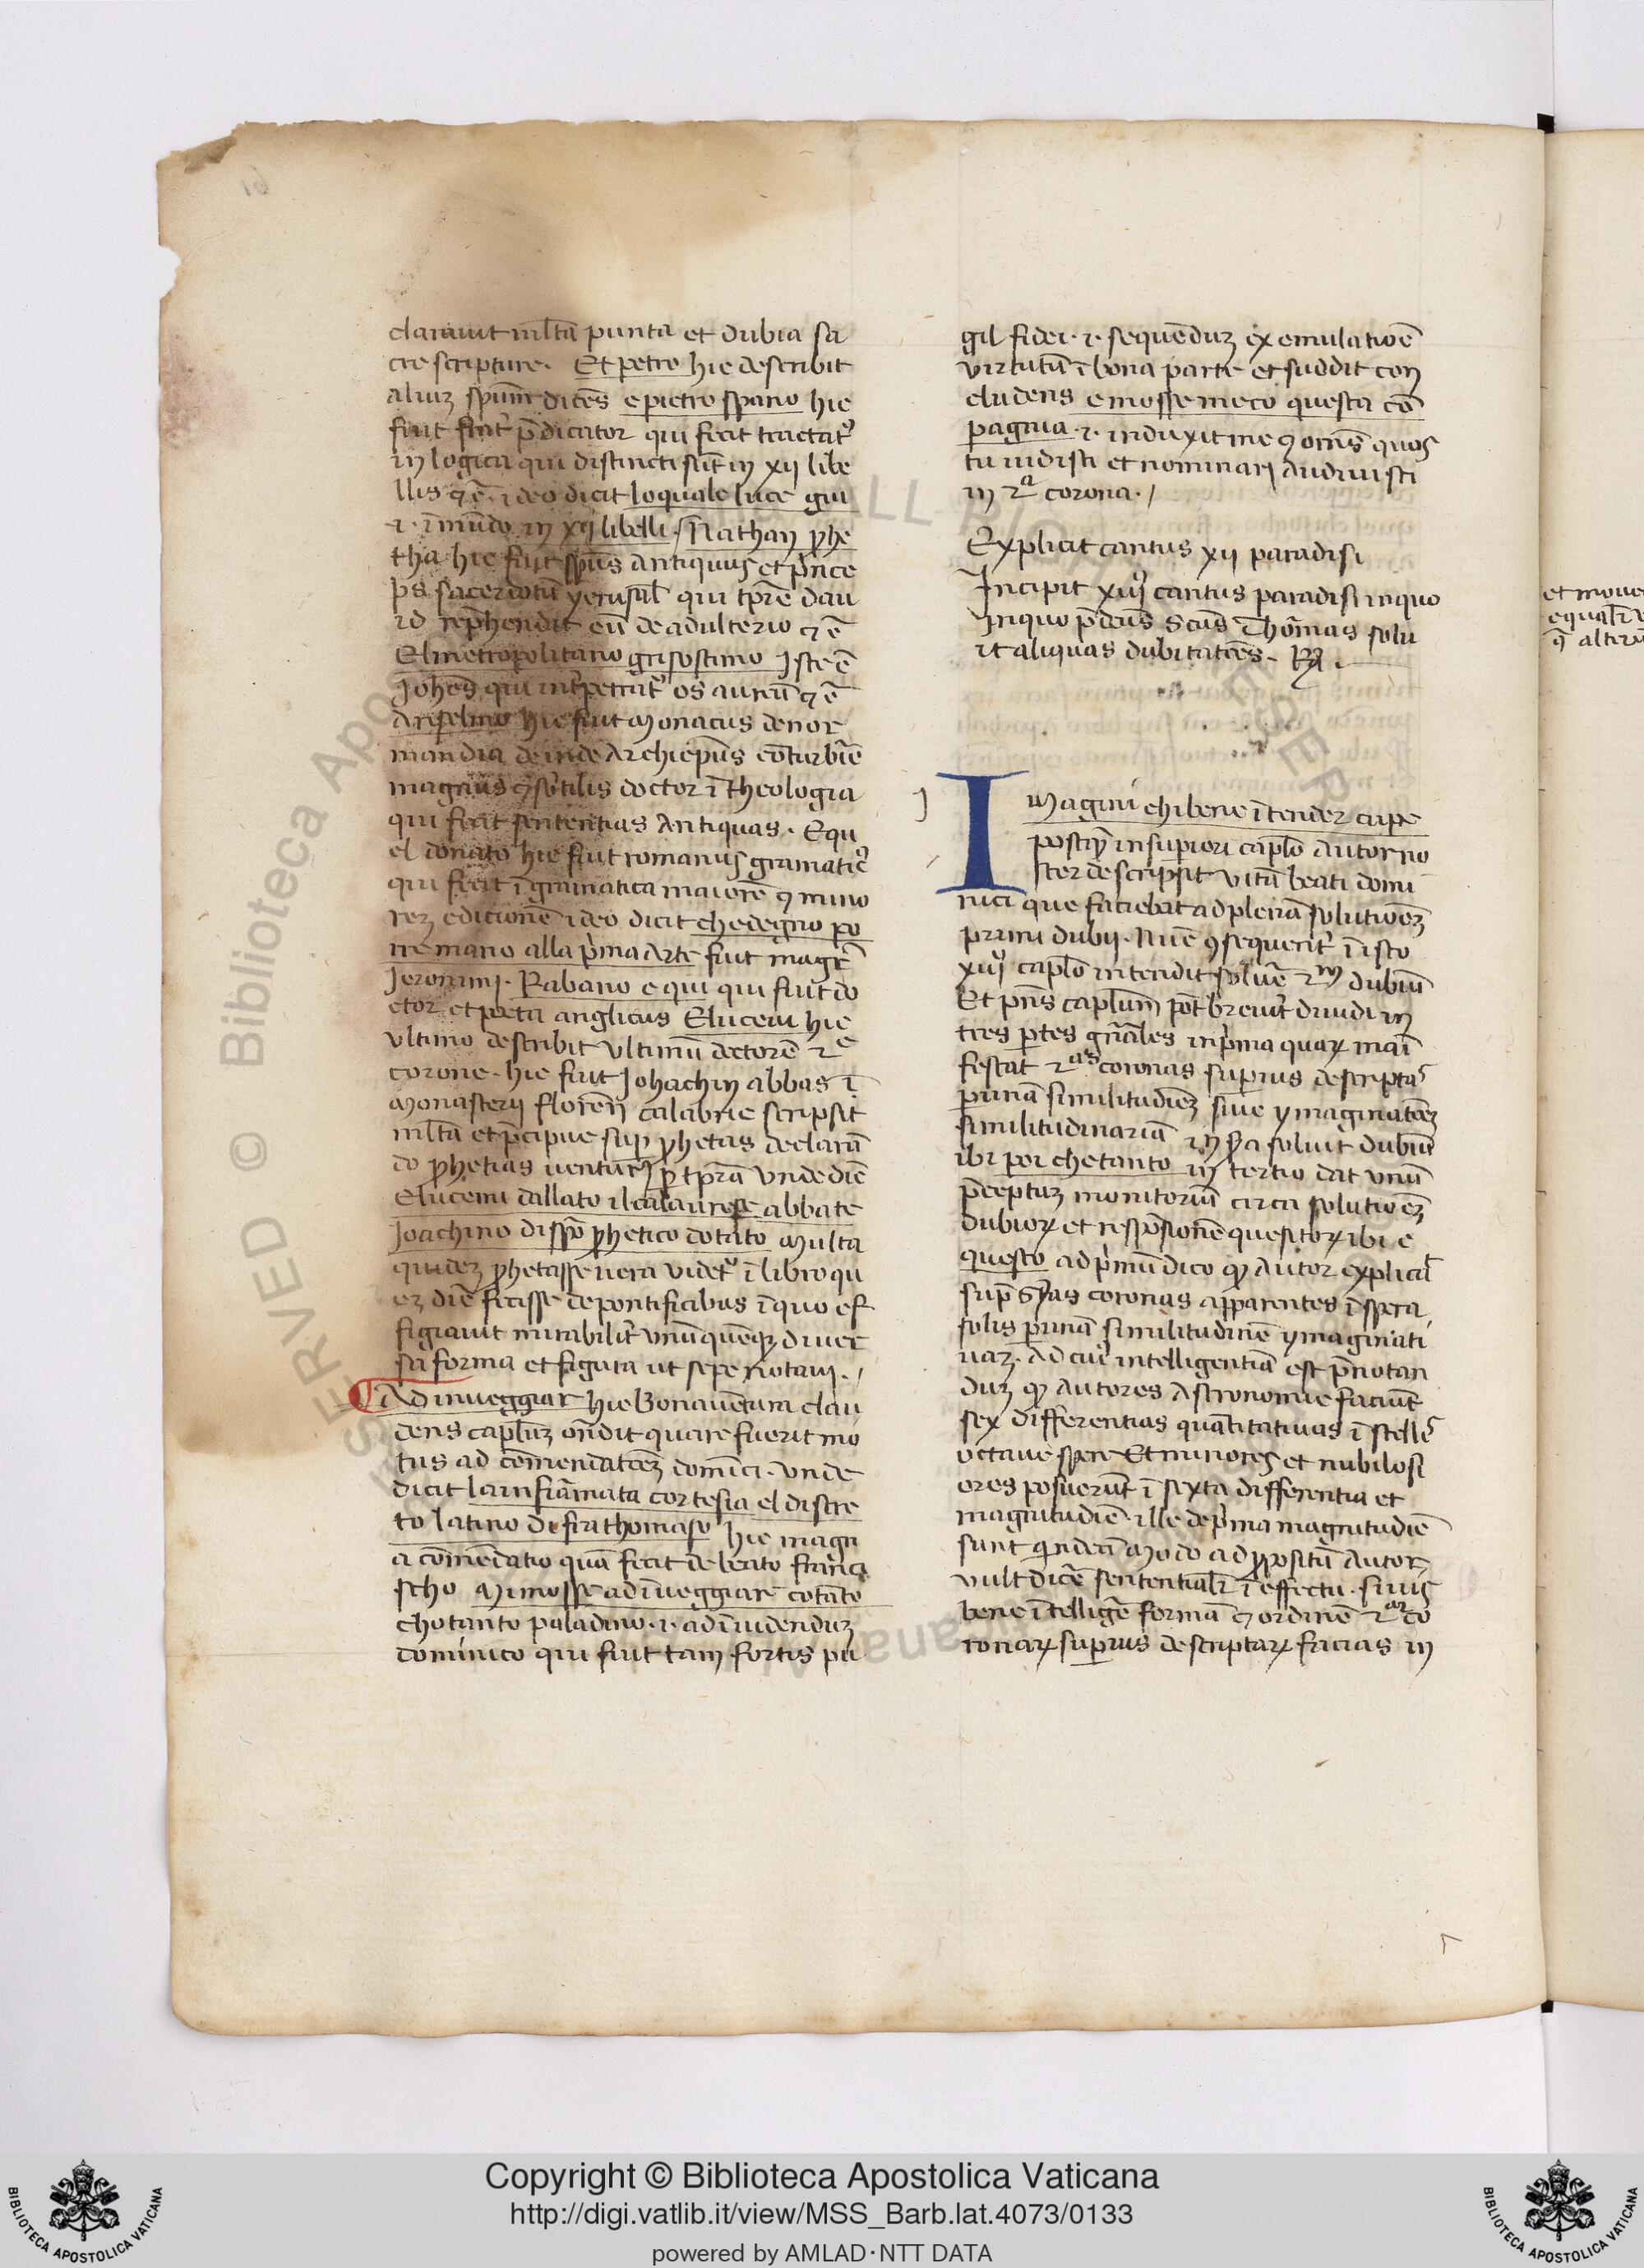 clarauit ml̃ta puncta et dubia sa
cre scripture. Et petro hic describit
aliuz spũm dicẽs e pietro spano hic
fuit frat᷑ p̃dicator qui fecit tractat᷒
in logica qui distincti sũt in xij libe
llis ⁊ ẽ ideo dicit lo quale luce giu
⁊. ĩ mũdo in xij libelli / Nathan ꝓhe
tha hic fuit sp̃us antiquus et p̃nce
ps sacerdotũ yerusal̃ qui tp̃re dau
id rep̃hendit eũ de adulterio ⁊ ẽ
El metropolitano grisostimo Iste ẽ
Johẽs qui int᷑pretat᷑ os aureũ ⁊ ẽ
Anselmo hic fuit monacus de nor
mandia deinde archiepũs cõturbiẽ
magnus ⁊ subtilis doctor ĩ theologia
qui fecit sententias antiquas. Equ
el donato hic fuit romanus gramatic᷒
qui fecit ĩ gramatica maiorẽ ⁊ mino
rez editionẽ ideo dicit che degno po
rre mano alla p̃ma arte fuit magr̃
Jeronimi. Rabano e qui qui fuit do
ctor et poeta anglicus Elucemi hic
vltimo describit vltimũ doctorẽ 2ᵉ
corone. hic fuit Johachin abbas ĩ
monasterij florẽñ calabrie scripsit
ml̃ta et p̃cipue suꝑ ꝓhetas declarã
do ꝓhetias uenturas ꝑ tp̃ra vnde diẽ
Elucemi dallato il calaurese abbate
Joachino di spũ ꝓhetico dotato multa
quidez ꝓhetasse uera videt᷑ ĩ libro qu
ez diẽ fecisse de pontificibus ĩ quo ef
figiauit mirabilit᷑ vnũquẽqꝫ diuer
sa forma et figura ut sepe notaui. /
Ad inueggiar hic Bonauẽtura clau
dens capl̃uz oñdit quare fuerit mo
tus ad cõmendatõez dom̃ici. vnde
dicit la infiãmata cortesia el discre
to latino di fra thomaso hic magn
a cõmẽdatio quã fecit de beato franci
scho Mi mosse ad ĩueggiare cotãto
chotanto paladino .⁊. ad ĩuidenduz
dominico qui fuit tam fortis pu
gil fidei .⁊. sequẽduz ex emulatiõe
virtutũ ĩ bona parte et suddit con
cludens e mosse meco questa cõ
pagnia .⁊. induxit me ⁊ om̃s quos
tu uidisti et nominari audiuisti
in 2ᵃ corona. /
Explicit cantus xij paradisi
Incipit xiijᵘˢ cantus paradisi in quo
In quo p̃dcũs Scũs Thõmas solu
it aliquas dubitatões. Rͣ.
Imagini chi bene ĩtender cupe
postꝙ̃ in superiori caplõ autor no
ster descripsit vitã beati domi
nici que faciebat ad plenã solutiõez
primi dubij. Nũc ⁊sequent᷑ ĩ isto
xiij caplõ intendit soluẽ 2ᵐ dubiũ
Et pñs caplum̃ põt breuit᷑ diuidi in
tres ꝑtes gñales in p̃ma quaꝝ mai
festat 2ᵃˢ coronas superius descriptas
per unã similitudiez siue ymaginatõez
similitudinariã in 2ᵃ soluit dubiũ
ibi poi che tanto in tertio dat vnũ
p̃ceptuz monitoriũ circa solutiõez
dubioꝝ et respõsionẽ quesitoꝝ ibi e
questo ad p̃mũ dico ꝙ autor explicat
sup̃ sc̃as coronas apparentes ĩ spera
solis per unã similitudinẽ ymaginati
uaz. Ad cui᷒ intelligentiã est p̃notan
duz ꝙ autores astronomie faciũt
sex differentias quãtitatiuas ĩ stellis
octaue spere Et minores et nubilosi
ores posuerũt ĩ sexta differentia et
magnitudiẽ. ille de p̃ma magnitudiẽ
sunt quĩdecĩ Modo ad ꝓpositũ autor
vult dicẽ sententialr̃ ĩ effectu. si uis
bene ĩtelligẽ formã ⁊ ordinẽ 2ᵃꝝ co
ronaꝝ superius descriptaꝝ facias in
et moue
equal̃r
ꝗ alteri
Copyright © Biblioteca Apostolica Vaticana
http://digi.vatlib.it/view/MSS_Barb.lat.4073/0133
powered by AMLAD·NTT DATA
BIBLIOTECA APOSTOLICA VATICANA
BIBLIOTECA APOSTOLICA VATICANA